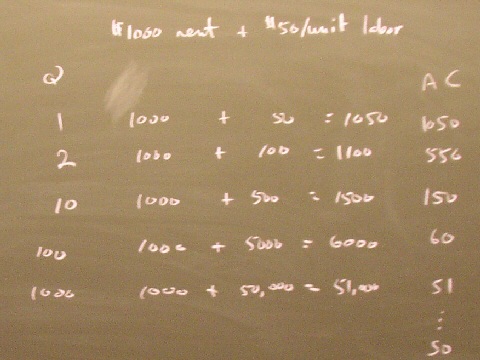 $1000 rent + $50/unit labor
Q AC
1 1000 + 50 = 1050 1050
2 1000 + 100 = 1100 550
10 1000 + 500 = 1500 150
100 1000 + 5000 = 6000 60
1000 1000 + 50,000 = 51,000 51
⋮
50